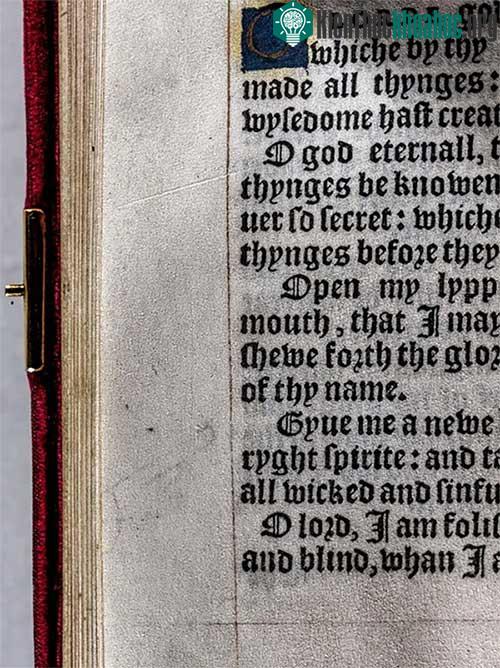 KienThucKhoaHoc.org
whiche by thy
made all thynges:
wyſedome haſt creat
O god eternall, t
thynges be knowen
uer ſo ſecret: which
thynges befoꝛe they
Open my lypp
mouth, that I may
ſhewe foꝛth the gloꝛ
of thy name.
Gyue me a newe
ryght ſpirite: and ta
all wicked and ſinfu
O loꝛd, I am foli
and blind, whan I a